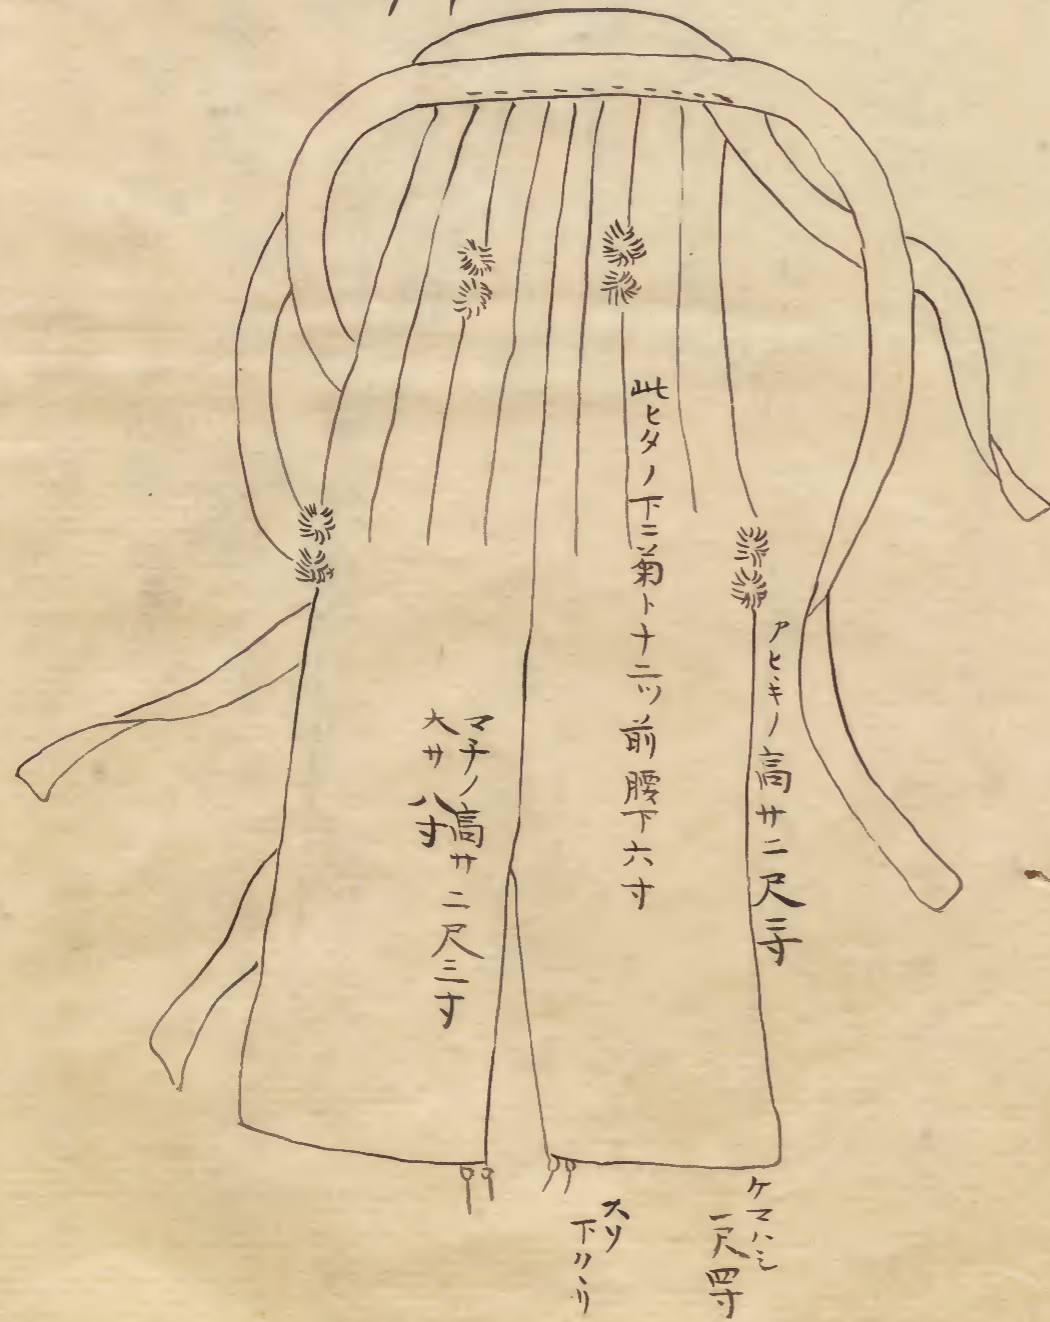 アヒキノ高サ二尺三寸
此ヒタノ下ニ菊トナニツ前腰下六寸
マチノ高サ二尺三寸
大サ八寸
ケマハシ
一尺四寸
スソ